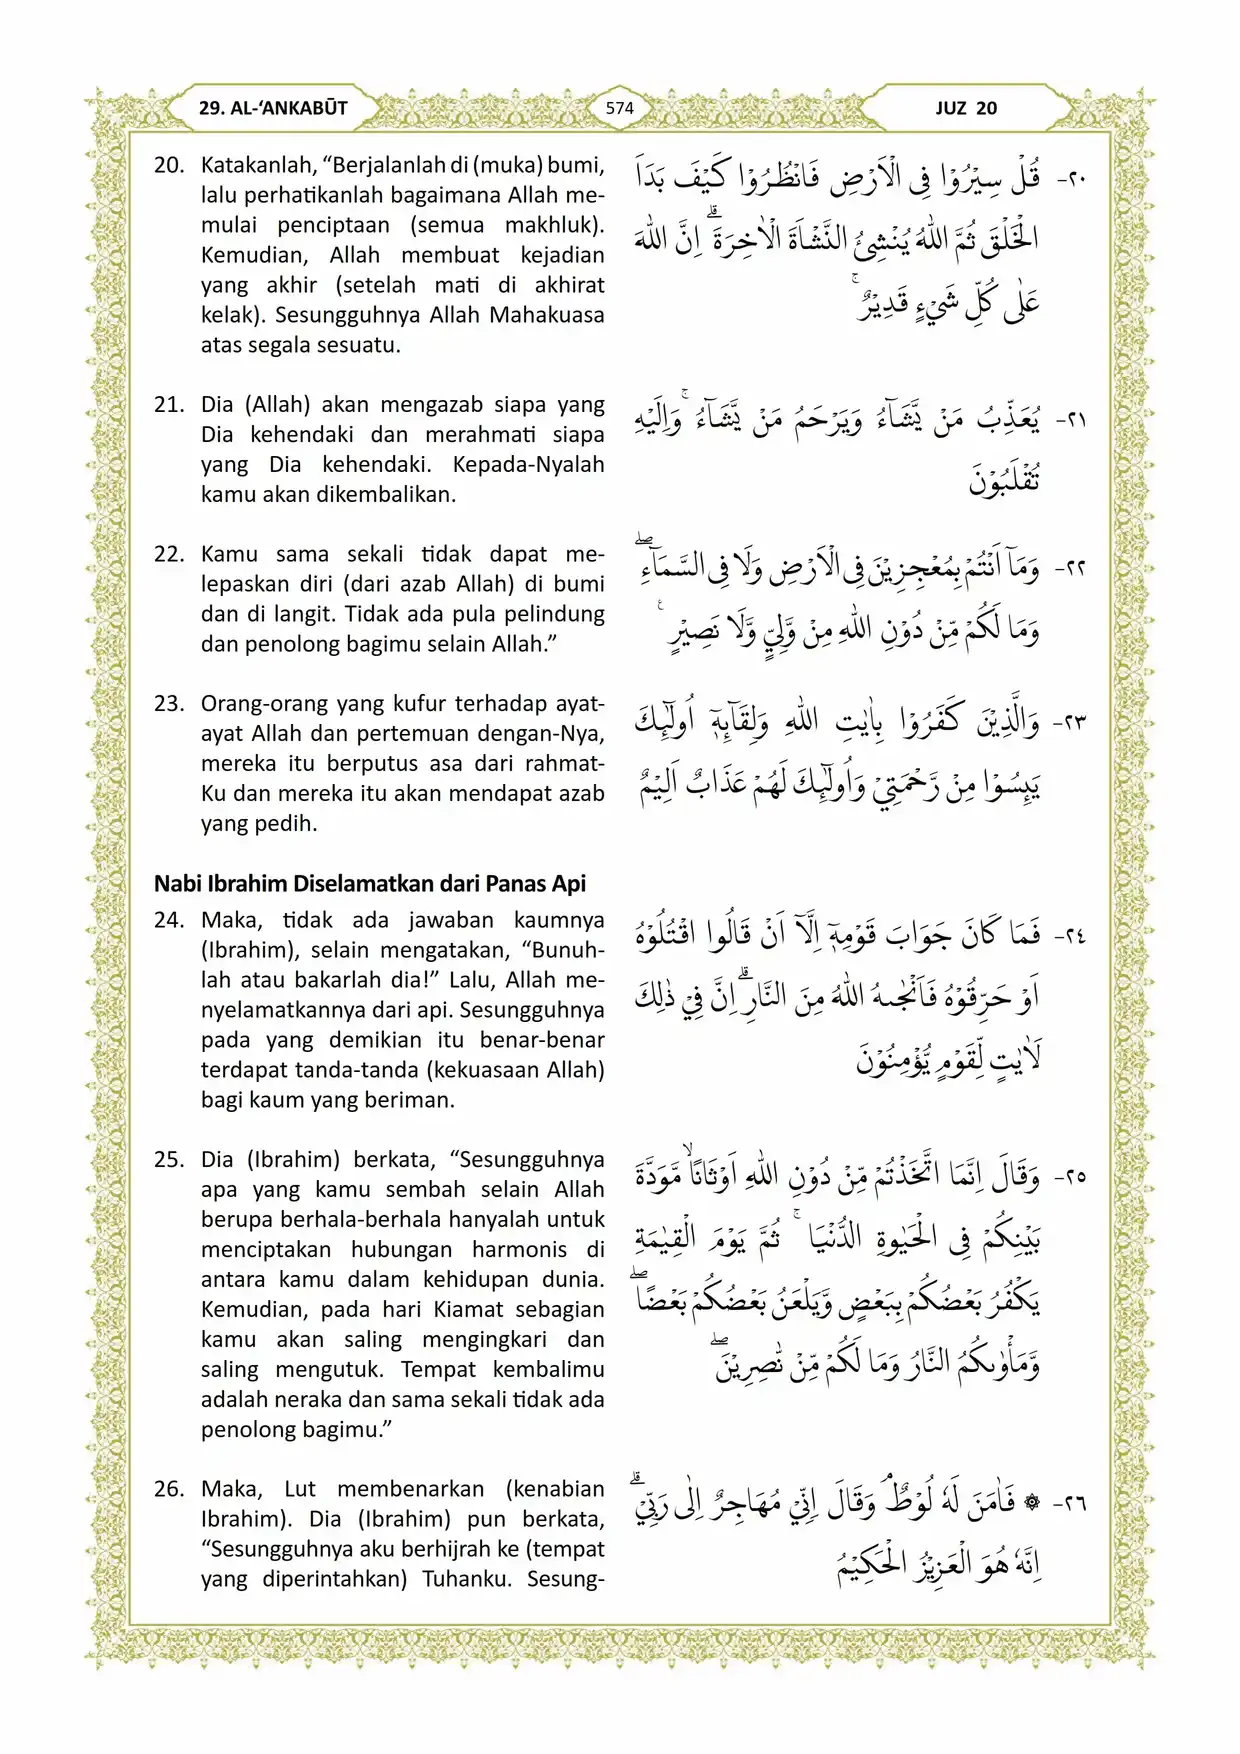 29. AL-‘ANKABŪT
574
JUZ 20
20. Katakanlah, “Berjalanlah di (muka) bumi,
lalu perhatikanlah bagaimana Allah me-
mulai penciptaan (semua makhluk).
Kemudian, Allah membuat kejadian
yang akhir (setelah mati di akhirat
kelak). Sesungguhnya Allah Mahakuasa
atas segala sesuatu.
٢٠- قُلْ سِيْرُوْا فِى الْاَرْضِ فَانْظُرُوْا كَيْفَ بَدَاَ
الْخَلْقَ ثُمَّ اللّٰهُ يُنْشِئُ النَّشْاَةَ الْاٰخِرَةَ ۗاِنَّ اللّٰهَ
عَلٰى كُلِّ شَيْءٍ قَدِيْرٌ ۚ
21. Dia (Allah) akan mengazab siapa yang
Dia kehendaki dan merahmati siapa
yang Dia kehendaki. Kepada-Nyalah
kamu akan dikembalikan.
٢١- يُعَذِّبُ مَنْ يَّشَاۤءُ وَيَرْحَمُ مَنْ يَّشَاۤءُ ۚوَاِلَيْهِ
تُقْلَبُوْنَ
22. Kamu sama sekali tidak dapat me-
lepaskan diri (dari azab Allah) di bumi
dan di langit. Tidak ada pula pelindung
dan penolong bagimu selain Allah.”
٢٢- وَمَآ اَنْتُمْ بِمُعْجِزِيْنَ فِى الْاَرْضِ وَلَا فِى السَّمَاۤءِ ۖ
وَمَا لَكُمْ مِّنْ دُوْنِ اللّٰهِ مِنْ وَّلِيٍّ وَّلَا نَصِيْرٍ ࣖ
23. Orang-orang yang kufur terhadap ayat-
ayat Allah dan pertemuan dengan-Nya,
mereka itu berputus asa dari rahmat-
Ku dan mereka itu akan mendapat azab
yang pedih.
٢٣- وَالَّذِيْنَ كَفَرُوْا بِاٰيٰتِ اللّٰهِ وَلِقَاۤىِٕهٖٓ اُولٰۤىِٕكَ
يَىِٕسُوْا مِنْ رَّحْمَتِيْ وَاُولٰۤىِٕكَ لَهُمْ عَذَابٌ اَلِيْمٌ
Nabi Ibrahim Diselamatkan dari Panas Api
24. Maka, tidak ada jawaban kaumnya
(Ibrahim), selain mengatakan, “Bunuh-
lah atau bakarlah dia!” Lalu, Allah me-
nyelamatkannya dari api. Sesungguhnya
pada yang demikian itu benar-benar
terdapat tanda-tanda (kekuasaan Allah)
bagi kaum yang beriman.
٢٤- فَمَا كَانَ جَوَابَ قَوْمِهٖٓ اِلَّآ اَنْ قَالُوا اقْتُلُوْهُ
اَوْ حَرِّقُوْهُ فَاَنْجٰىهُ اللّٰهُ مِنَ النَّارِۗ اِنَّ فِيْ ذٰلِكَ
لَاٰيٰتٍ لِّقَوْمٍ يُّؤْمِنُوْنَ
25. Dia (Ibrahim) berkata, “Sesungguhnya
apa yang kamu sembah selain Allah
berupa berhala-berhala hanyalah untuk
menciptakan hubungan harmonis di
antara kamu dalam kehidupan dunia.
Kemudian, pada hari Kiamat sebagian
kamu akan saling mengingkari dan
saling mengutuk. Tempat kembalimu
adalah neraka dan sama sekali tidak ada
penolong bagimu.”
٢٥- وَقَالَ اِنَّمَا اتَّخَذْتُمْ مِّنْ دُوْنِ اللّٰهِ اَوْثَانًاۙ مَّوَدَّةَ
بَيْنِكُمْ فِى الْحَيٰوةِ الدُّنْيَا ۚ ثُمَّ يَوْمَ الْقِيٰمَةِ
يَكْفُرُ بَعْضُكُمْ بِبَعْضٍ وَّيَلْعَنُ بَعْضُكُمْ بَعْضًا ۖ
وَّمَأْوٰىكُمُ النَّارُ وَمَا لَكُمْ مِّنْ نّٰصِرِيْنَ ۖ
26. Maka, Lut membenarkan (kenabian
Ibrahim). Dia (Ibrahim) pun berkata,
“Sesungguhnya aku berhijrah ke (tempat
yang diperintahkan) Tuhanku. Sesung-
٢٦- ۞ فَاٰمَنَ لَهٗ لُوْطٌۘ وَقَالَ اِنِّيْ مُهَاجِرٌ اِلٰى رَبِّيْ ۗ
اِنَّهٗ هُوَ الْعَزِيْزُ الْحَكِيْمُ